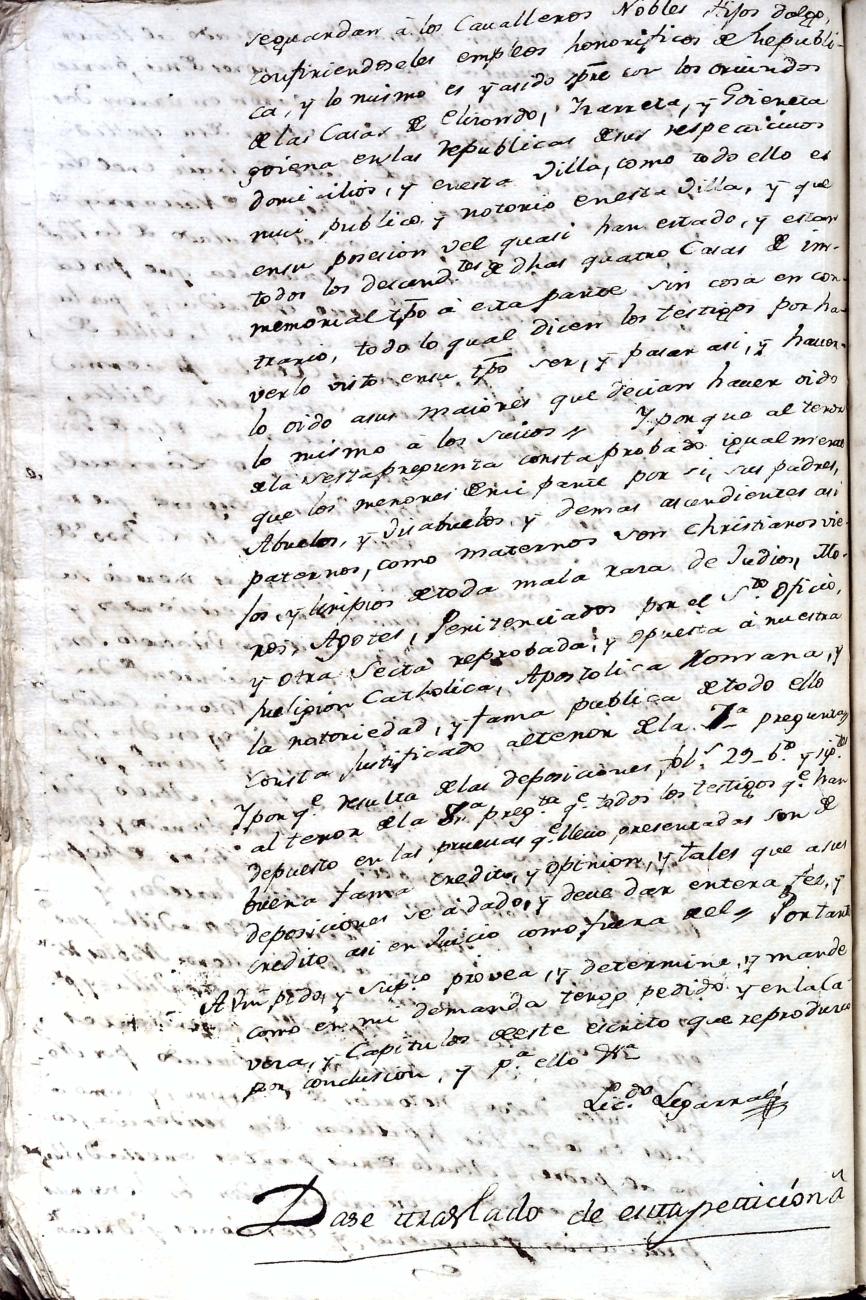 seguardan à los Cavalleros Nobles Fijos dalgo,
confiriendoseles empleos honorificos de Republi-
ca, y lo mismo es y asido spre con los oriundos
de las Casas de Elizondo, Yzarreta, y Goieneta
goiena en las republicas de sus respectivos
domicilios, y en esta Villa, como todo ello es
mui publico, y notorio en esta Villa, y que
ensu posesion vel quasi han estado, y estan
todos los descend.tes de dhas quatro Casas de im-
memorial tpõ à esta parte sin cosa en con-
trario, todo lo qual dicen los testigos por ha-
verlo visto ensu tpõ ser, y pasar asi, y haver-
lo oido asus maiores que decian haver oido
lo mismo à los suios Y porque al tenor
de la Sesta pregunta consta probado igualmente
que los menores de mi parte por si, sus padres,
Abuelos, y Visabuelos, y demas ascendientes asi
paternos, como maternos son Christianos vie-
jos, y limpios de toda mala raza de Judios, Mo-
ros, Agotes, Penitenciados por el S.to Oficio,
y otra Secta reprobada, y opuesta à nuestra
Religion Catholica, Apostolica Romana, y
la notoriedad, y fama publica de todo ello
consta Justificado altenor de la 7.a pregunta
Y porq.e resulta de las deposiciones fol.s 29 b.to y sig.tes
al tenor de la 8.a preg.ta q.e todos los testigos q.e han
depuesto en las pruevas q.e llevo presentadas son de
buena fama credito, y opinion, y tales que a sus
deposiciones se à dado, y deve dar entera fee, y
credito asi en Juicio como fuera del Por tanto
A Vm pido, y sup.co provea, y determine, y mande
como en mi demanda tengo pedido y en la Ca-
veza, y Capitulos de este escrito que reproduzco
por conclusion, y p.a ello &.a
Lic.do Legarra
Dase traslado de esta petticion à